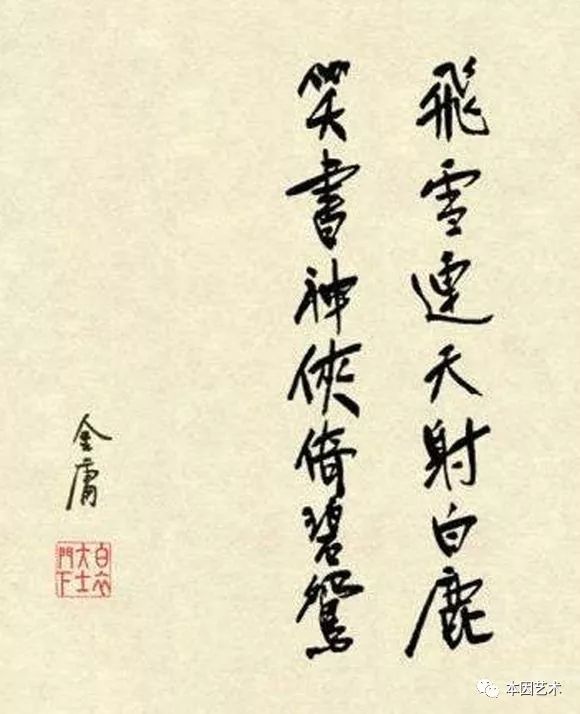 飛雪連天射白鹿
笑書神俠倚碧鴛
金庸
白衣大士門下
本因艺术